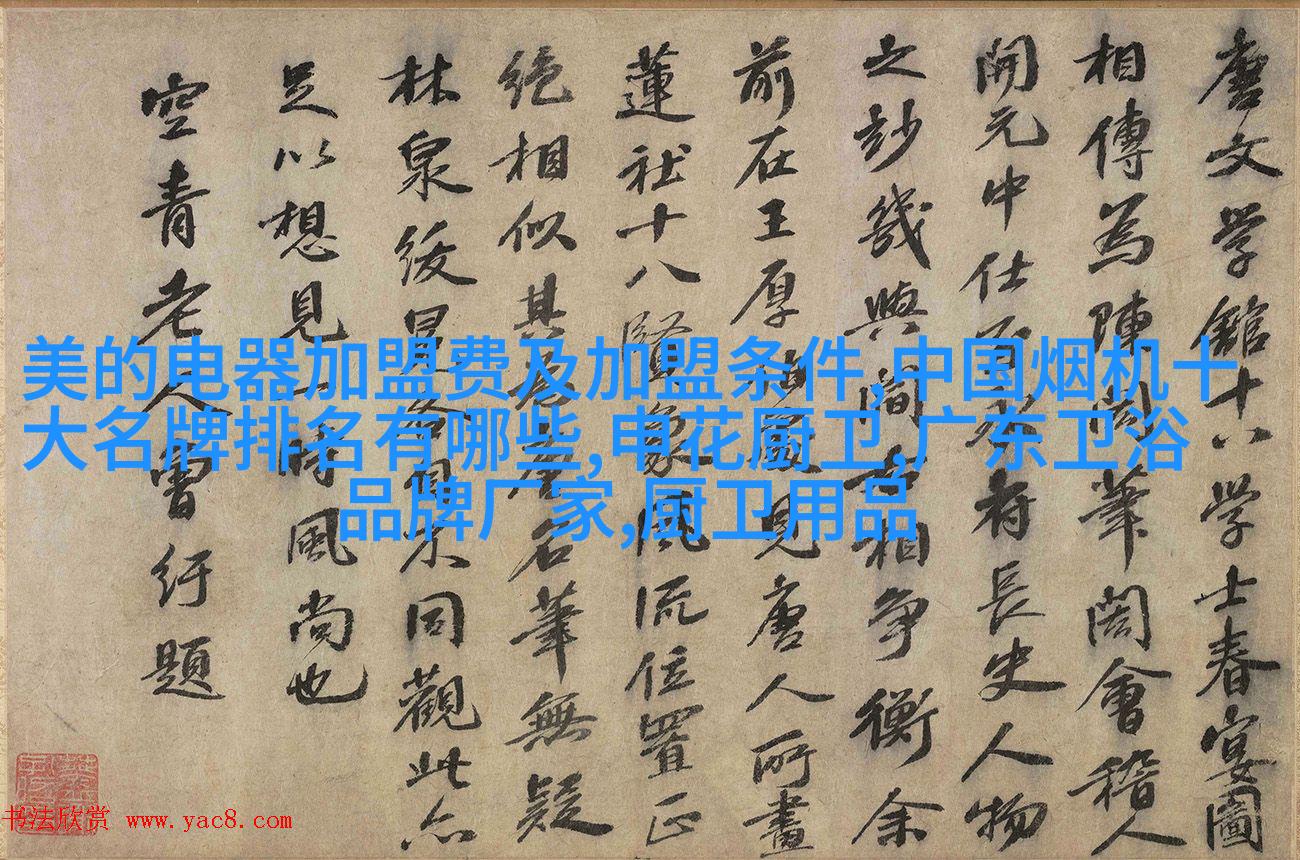 美的电器加盟费及加盟条件,中国烟机十
大名牌排名有哪些,申花厨卫,广东卫浴
品牌厂家,厨卫用品
唐文学館十八学士春宴圖
相傳為陳閎筆閎會稽人
開元中仕府長史人物
之玅幾與閻相争衡余
前在王厚見唐人所畫
蓮社十八賢象風流位置正
絶相似其唐名筆無疑
林泉綬冕不同觀此亦
足以想見一時風尚也
空青老人曾紆題
书法欣赏 www.yac8.com